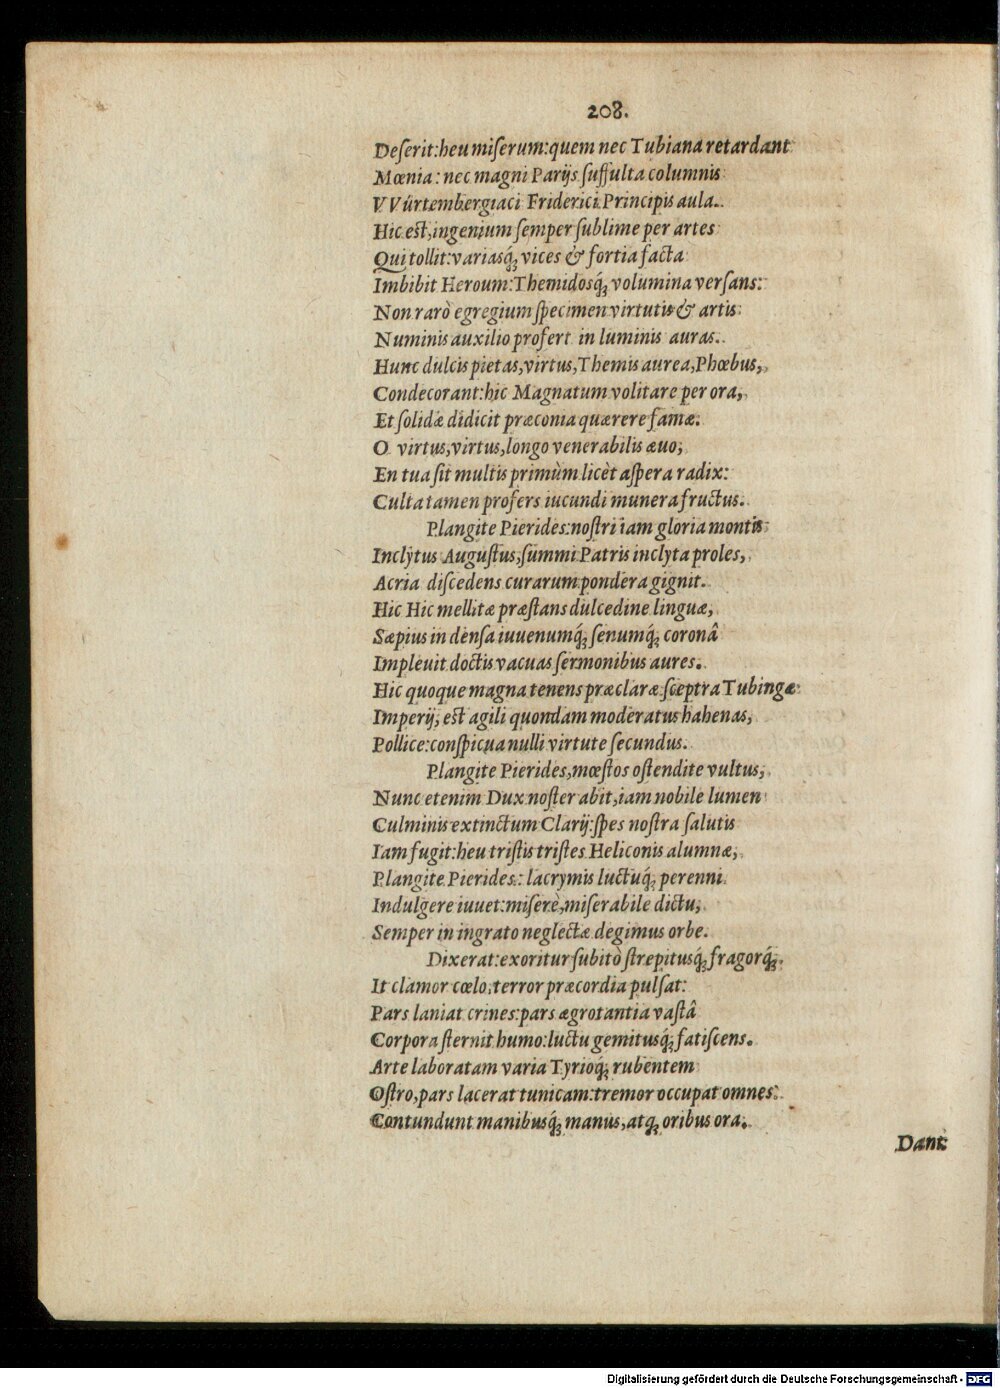 208.
Deſerit:heu miſerum:quem nec Tubiana retardant
Mœnia: nec magni Parijs ſuffulta columnis
VVürtembergiaci Friderici Principis aula.
Hic eſt,ingenium ſemper ſublime per artes
Qui tollit:variasq́ꝫ vices & fortia facta
Imbibit Heroum:Themidosq́ꝫ volumina verſans:
Non rarò egregium ſpecimen virtutis & artis
Numinis auxilio profert in luminis auras.
Hunc dulcis pietas,virtus,Themis aurea,Phœbus,
Condecorant:hic Magnatum volitare per ora,
Et ſolidæ didicit præconia quærere famæ.
O virtus,virtus,longo venerabilis æuo,
En tua ſit multis primùm licèt aſpera radix:
Culta tamen profers iucundi munera fructus.
Plangite Pierides:noſtri iam gloria montis
Inclÿtus Auguſtus,ſummi Patris inclyta proles,
Acria diſcedens curarum pondera gignit.
Hic Hic mellitæ præſtans dulcedine linguæ,
Sæpius in denſa iuuenumq́ꝫ ſenumq́ꝫ coronâ
Impleuit doctis vacuas ſermonibus aures.
Hic quoque magna tenens præclaræ ſceptra Tubingæ
Imperij, eſt agili quondam moderatus habenas,
Pollice:conſpicua nulli virtute ſecundus.
Plangite Pierides,mœſtos oſtendite vultus,
Nunc etenim Dux noſter abit,iam nobile lumen
Culminis extinctum Clarij:ſpes noſtra ſalutis
Iam fugit:heu triſtis triſtes Heliconis alumnæ,
Plangite Pierides: lacrymis luctuq́ꝫ perenni
Indulgere iuuet:miſerè,miſerabile dictu,
Semper in ingrato neglectæ degimus orbe.
Dixerat:exoritur ſubitò ſtrepitusq́ꝫ fragorq́ꝫ.
It clamor cœlo,terror præcordia pulſat:
Pars laniat crines:pars ægrotantia vaſtâ
Corpora ſternit humo:luctu gemitusq́ꝫ fatiſcens.
Arte laboratam varia Tyrioq́ꝫ rubentem
Oſtro,pars lacerat tunicam:tremor occupat omnes:
Contundunt manibusq́ꝫ manus,atqꝫ oribus ora.
Dant
Digitalisierung gefördert durch die Deutsche Forschungsgemeinschaft - DFG